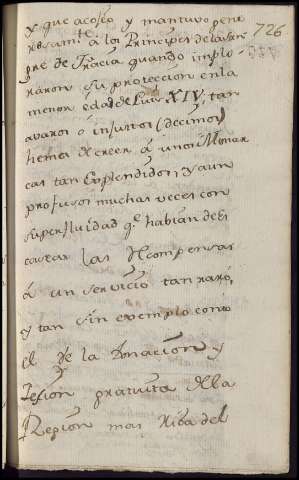 726
y que acogio, y mantuvo gene
rosamte. a los Principes de la San
gre de Francia quando implo
raron su proteccion en la
menor edad de Luis XIV, tan
avaros ó injustos (decimos)
hemos de creer á unos Monar
cas tan Esplendidos, y aun
profusos muchas veces con
superfluidad qe. habian de es
casear las Recompensas
á un servicio tan raro,
y tan sin exemplo como
el de la Donacion y
Cesion gratuita de la
Region mas Rica del